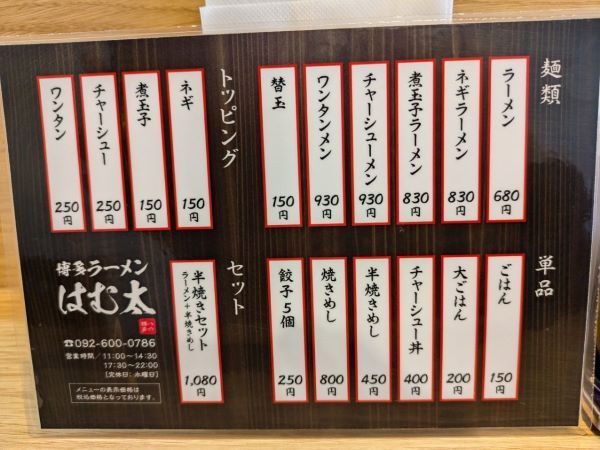 麺類
ラーメン 680円
ネギラーメン 830円
煮玉子ラーメン 830円
チャーシューメン 930円
ワンタンメン 930円
替玉 150円
トッピング
ネギ 150円
煮玉子 150円
チャーシュー 250円
ワンタン 250円
単品
ごはん 150円
大ごはん 200円
チャーシュー丼 400円
半焼きめし 450円
焼きめし 800円
餃子5個 250円
セット
半焼きセット
ラーメン+半焼きめし
1,080円
博多ラーメン
はむ太
☎092-600-0786
営業時間/11:00~14:30
17:30~22:00
[定休日:水曜日]
メニューの表示価格は
税込価格となっております。